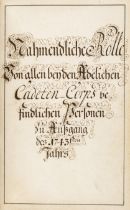 Nahmendliche Rolle
Von allen bey dem Adelichen
Cadeten Corps be
findlichen Personen
Zu Außgang
des 1743sten
Jahrs.